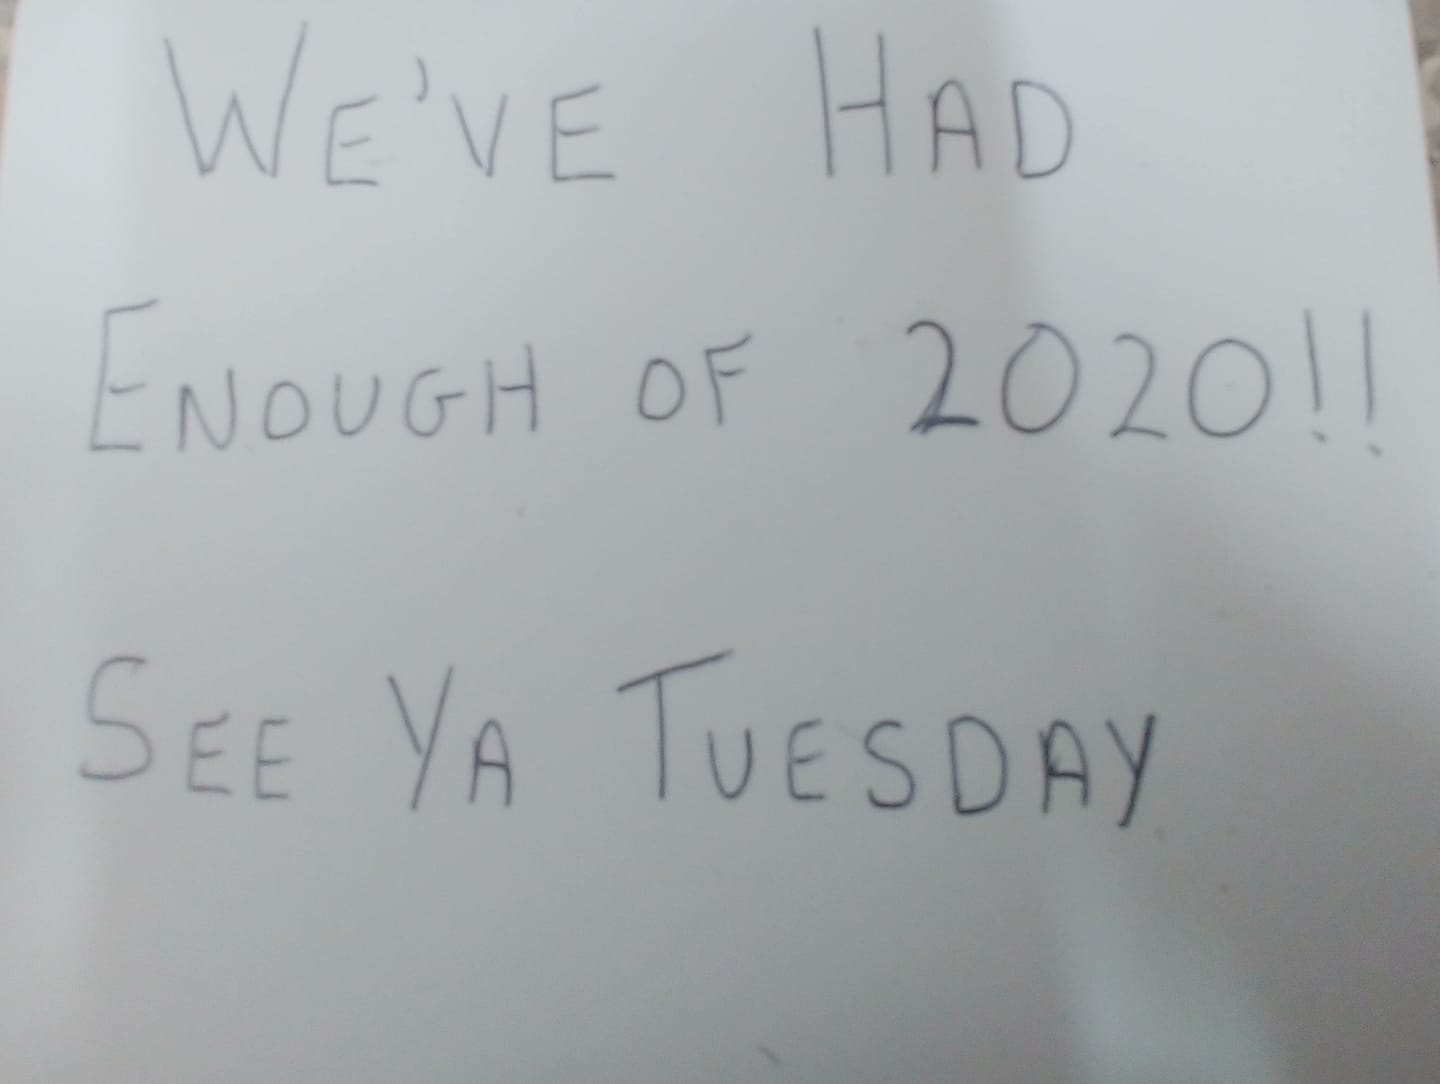 WE'VE HAD
ENOUGH OF 2020!!
SEE YA TUESDAY